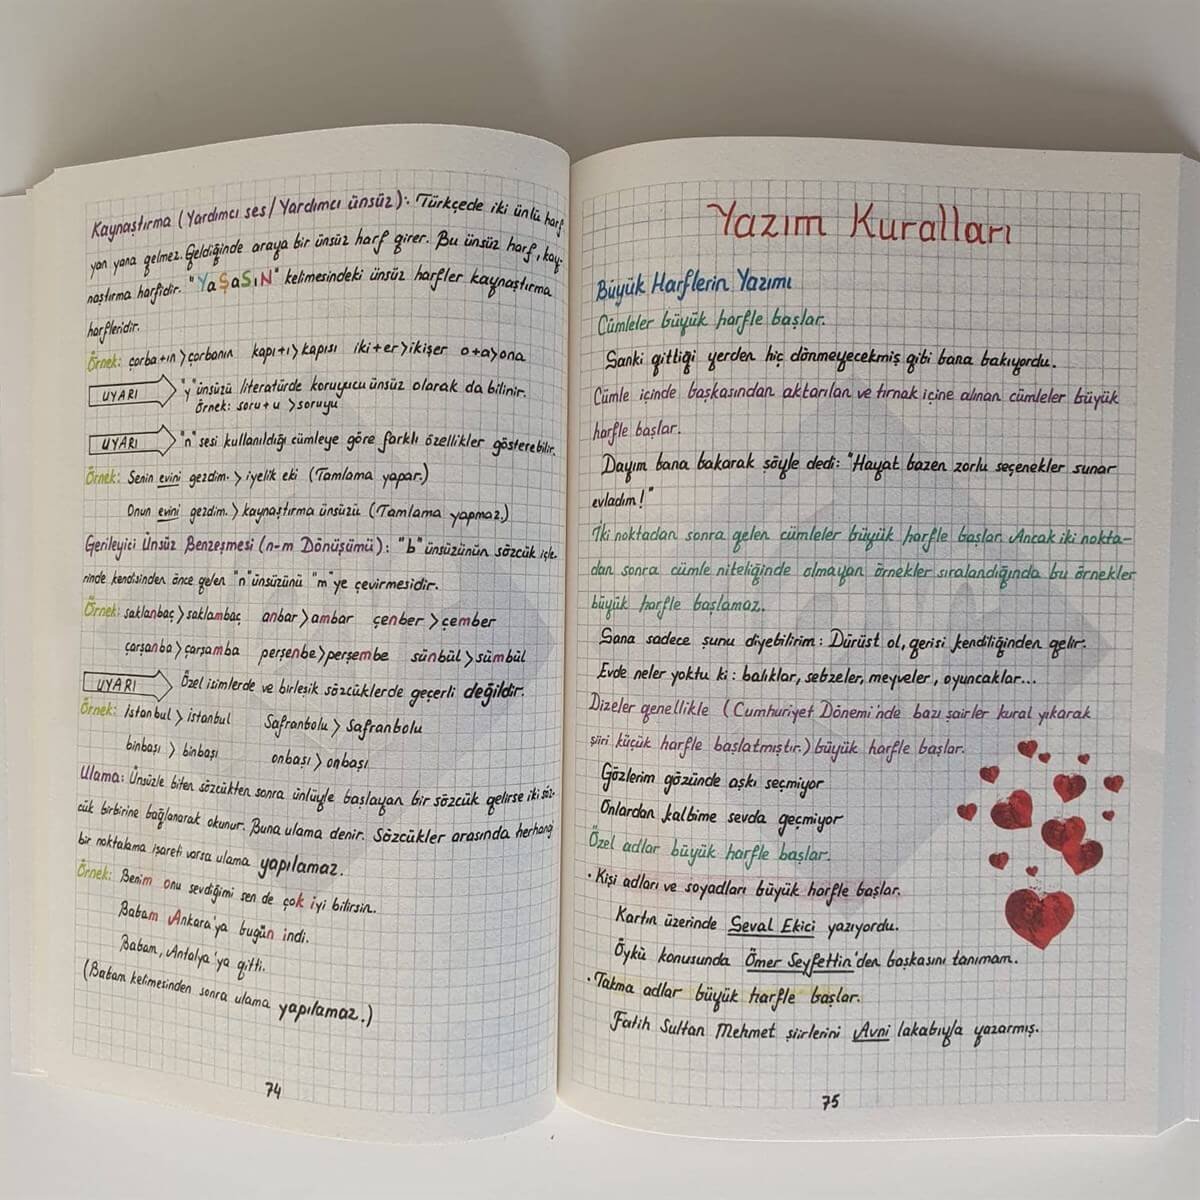 Kaynaştırma (Yardımcı ses/Yardımcı ünsüz): Türkçede iki ünlü harf
yan yana gelmez. Geldiğinde araya bir ünsüz harf girer. Bu ünsüz harf, kay-
naştırma harfidir. "YaŞaSıN" kelimesindeki ünsüz harfler kaynaştırma
harfleridir.
Örnek: çorba+ın>çorbanın kapı+ı>kapısı iki+er>ikişer o+a>ona
UYARI "y" ünsüzü literatürde koruyucu ünsüz olarak da bilinir.
Örnek: soru+u >soruyu
UYARI "n" sesi kullanıldığı cümleye göre farklı özellikler gösterebilir.
Örnek: Senin evini gezdim. > iyelik eki (Tamlama yapar.)
Onun evini gezdim. > kaynaştırma ünsüzü (Tamlama yapmaz.)
Gerileyici Ünsüz Benzeşmesi (n-m Dönüşümü): "b" ünsüzünün sözcük içle-
rinde kendisinden önce gelen "n" ünsüzünü "m"ye çevirmesidir.
Örnek: saklanbaç > saklambaç anbar > ambar çenber > çember
çarşanba > çarşamba perşenbe > perşembe sünbül > sümbül
UYARI Özel isimlerde ve birleşik sözcüklerde geçerli değildir.
Örnek: İstanbul > istanbul Safranbolu > Safranbolu
binbaşı > binbaşı onbaşı > onbaşı
Ulama: Ünsüzle biten sözcükten sonra ünlüyle başlayan bir sözcük gelirse iki söz-
cük birbirine bağlanarak okunur. Buna ulama denir. Sözcükler arasında herhangi
bir noktalama işareti varsa ulama yapılamaz.
Örnek: Benim onu sevdiğimi sen de çok iyi bilirsin.
Babam Ankara'ya bugün indi.
Babam, Antalya'ya gitti.
(Babam kelimesinden sonra ulama yapılamaz.)
74
Yazım Kuralları
Büyük Harflerin Yazımı
Cümleler büyük harfle başlar.
Sanki gittiği yerden hiç dönmeyecekmiş gibi bana bakıyordu.
Cümle içinde başkasından aktarılan ve tırnak içine alınan cümleler büyük
harfle başlar.
Dayım bana bakarak şöyle dedi: "Hayat bazen zorlu seçenekler sunar
evladım!"
İki noktadan sonra gelen cümleler büyük harfle başlar. Ancak iki nokta-
dan sonra cümle niteliğinde olmayan örnekler sıralandığında bu örnekler
büyük harfle başlamaz.
Sana sadece şunu diyebilirim: Dürüst ol, gerisi kendiliğinden gelir.
Evde neler yoktu ki: balıklar, sebzeler, meyveler, oyuncaklar...
Dizeler genellikle (Cumhuriyet Dönemi'nde bazı şairler kural yıkarak
şiiri küçük harfle başlatmıştır.) büyük harfle başlar.
Gözlerim gözünde aşkı seçmiyor
Onlardan kalbime sevda geçmiyor
Özel adlar büyük harfle başlar.
• Kişi adları ve soyadları büyük harfle başlar.
Kartın üzerinde Seval Ekici yazıyordu.
Öykü konusunda Ömer Seyfettin'den başkasını tanımam.
• Takma adlar büyük harfle başlar.
Fatih Sultan Mehmet şiirlerini Avni lakabıyla yazarmış.
75